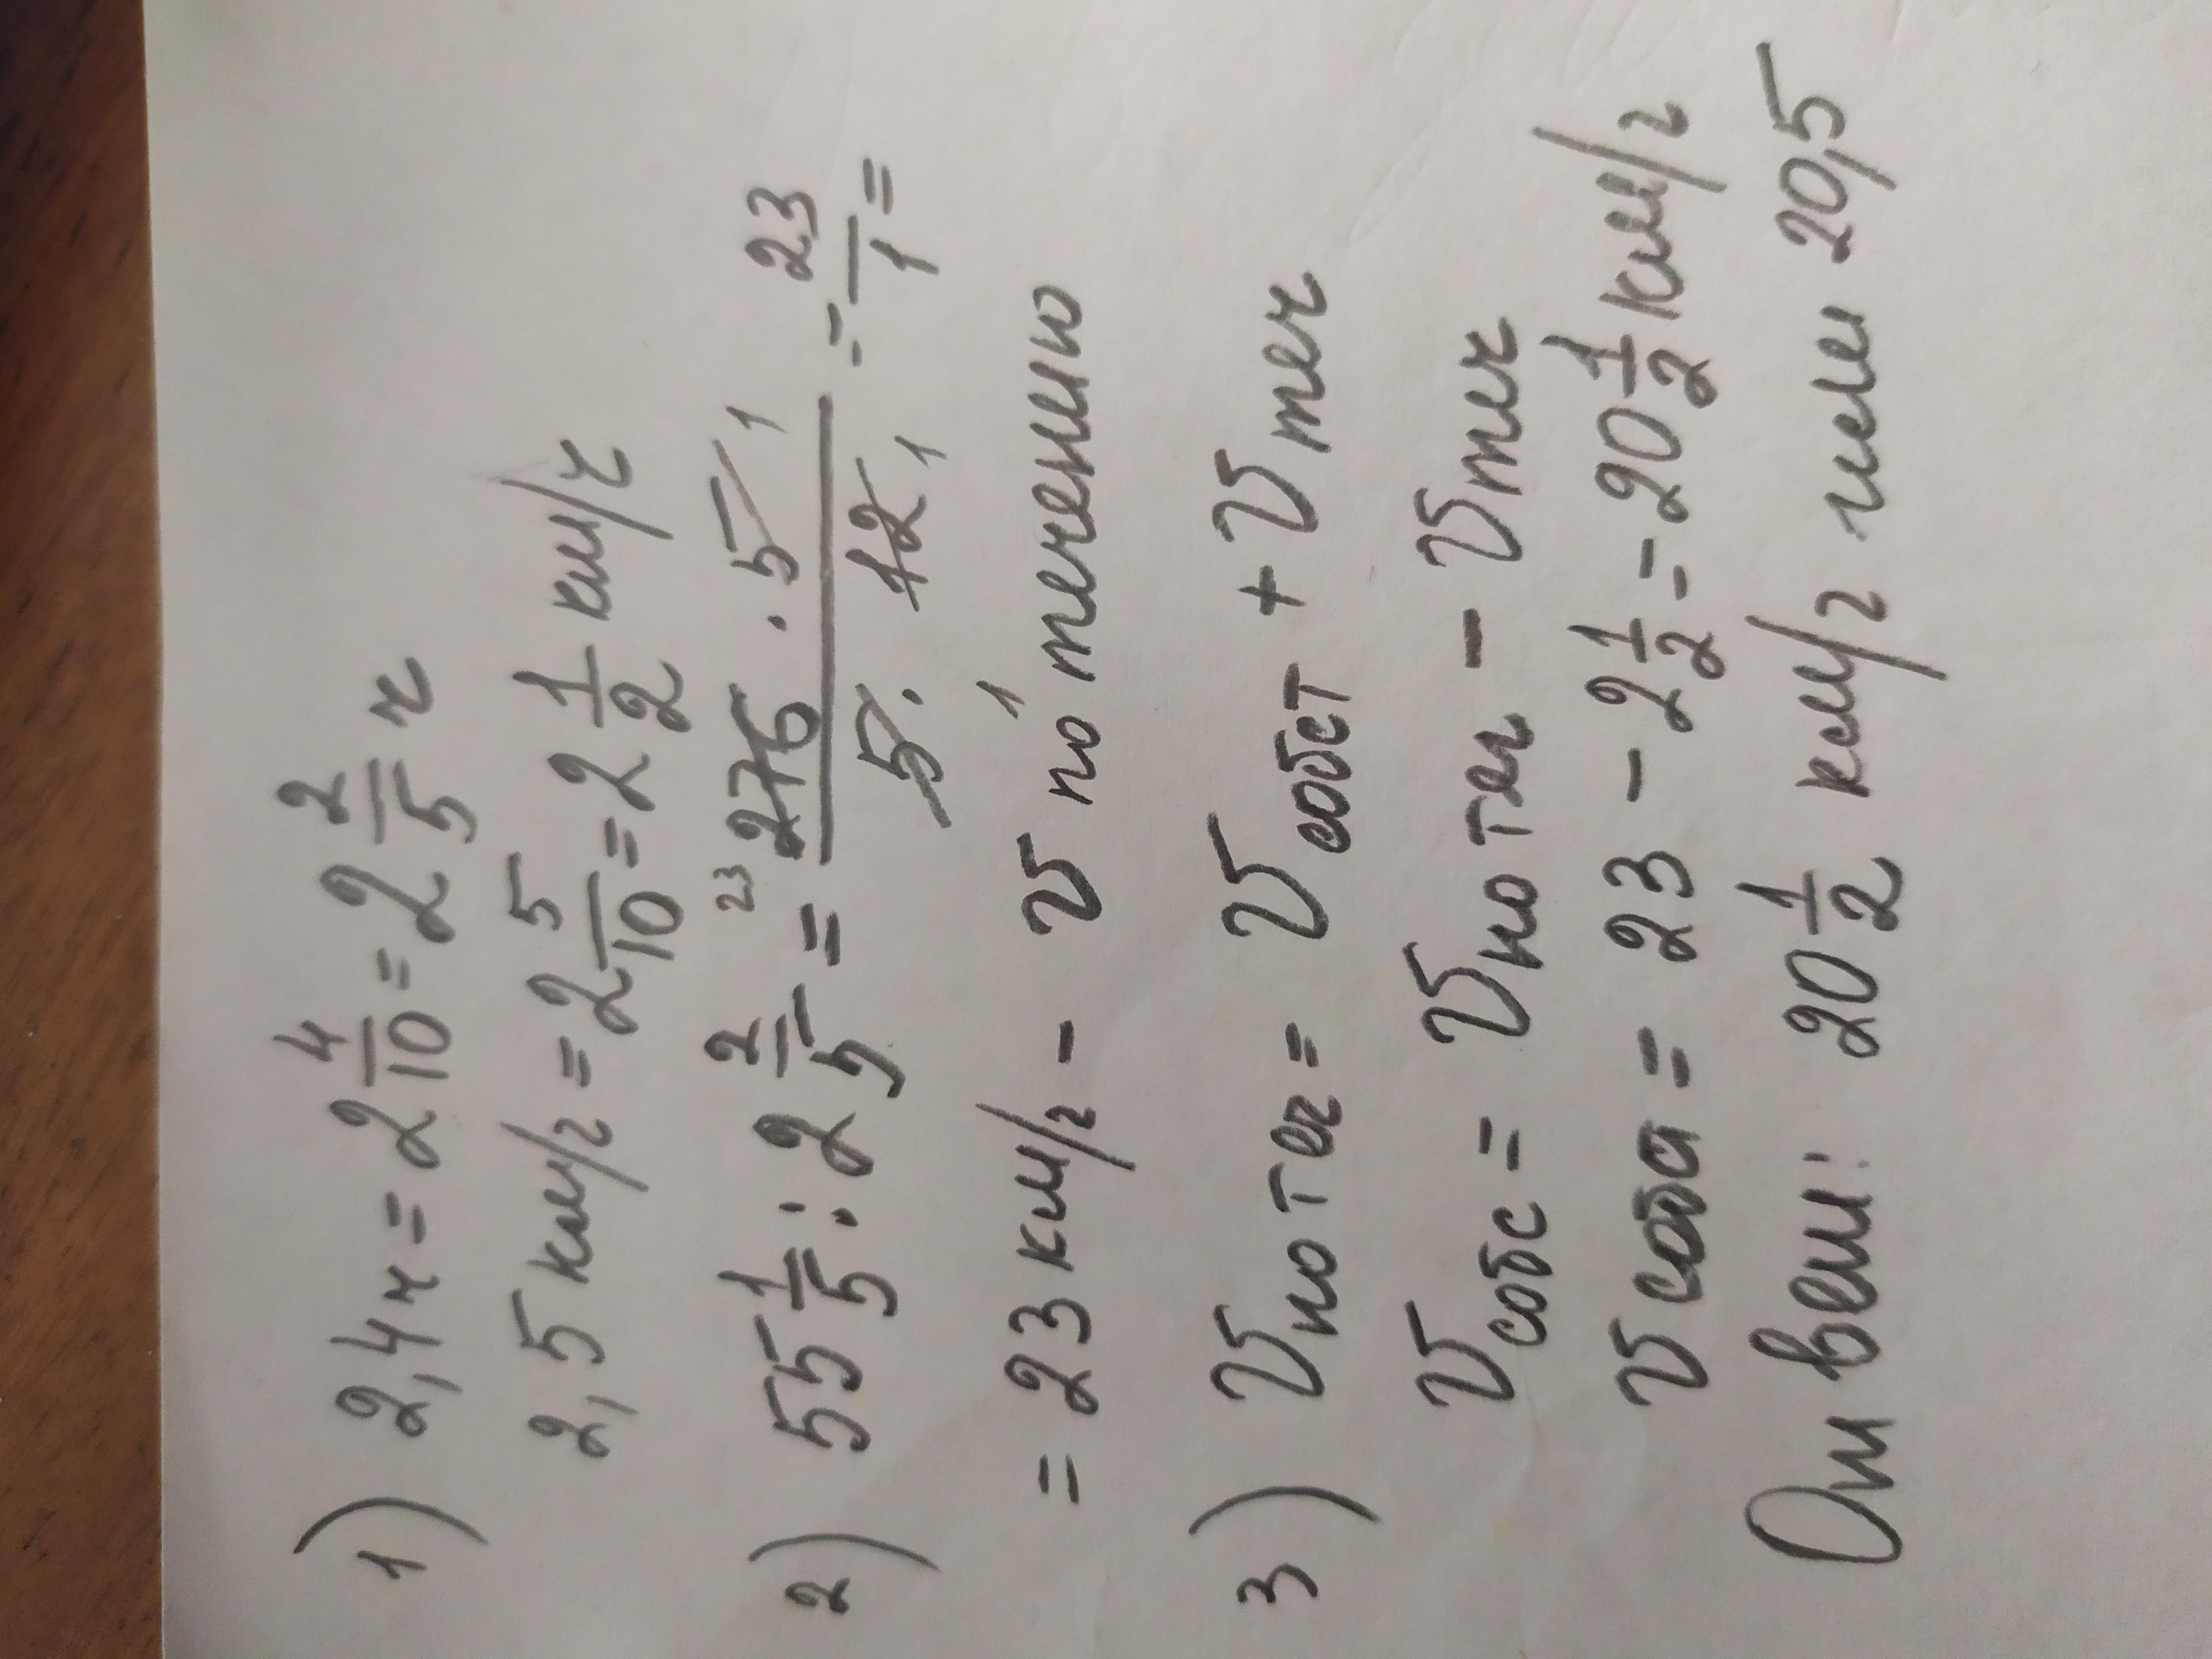 1) 2,4ч = 2 4/10 = 2 2/5 ч
2,5 км/ч = 2 5/10 = 2 1/2 км/ч
2) 55 1/5 : 2 2/5 = 23 276 · 5 1 / 5 1 · 12 1 = 23/1 =
= 23 км/ч - V по течению
3) V по теч = V собст + V теч
V собс = V по теч - V теч
V собс = 23 - 2 1/2 = 20 1/2 км/ч
Ответ: 20 1/2 км/ч или 20,5